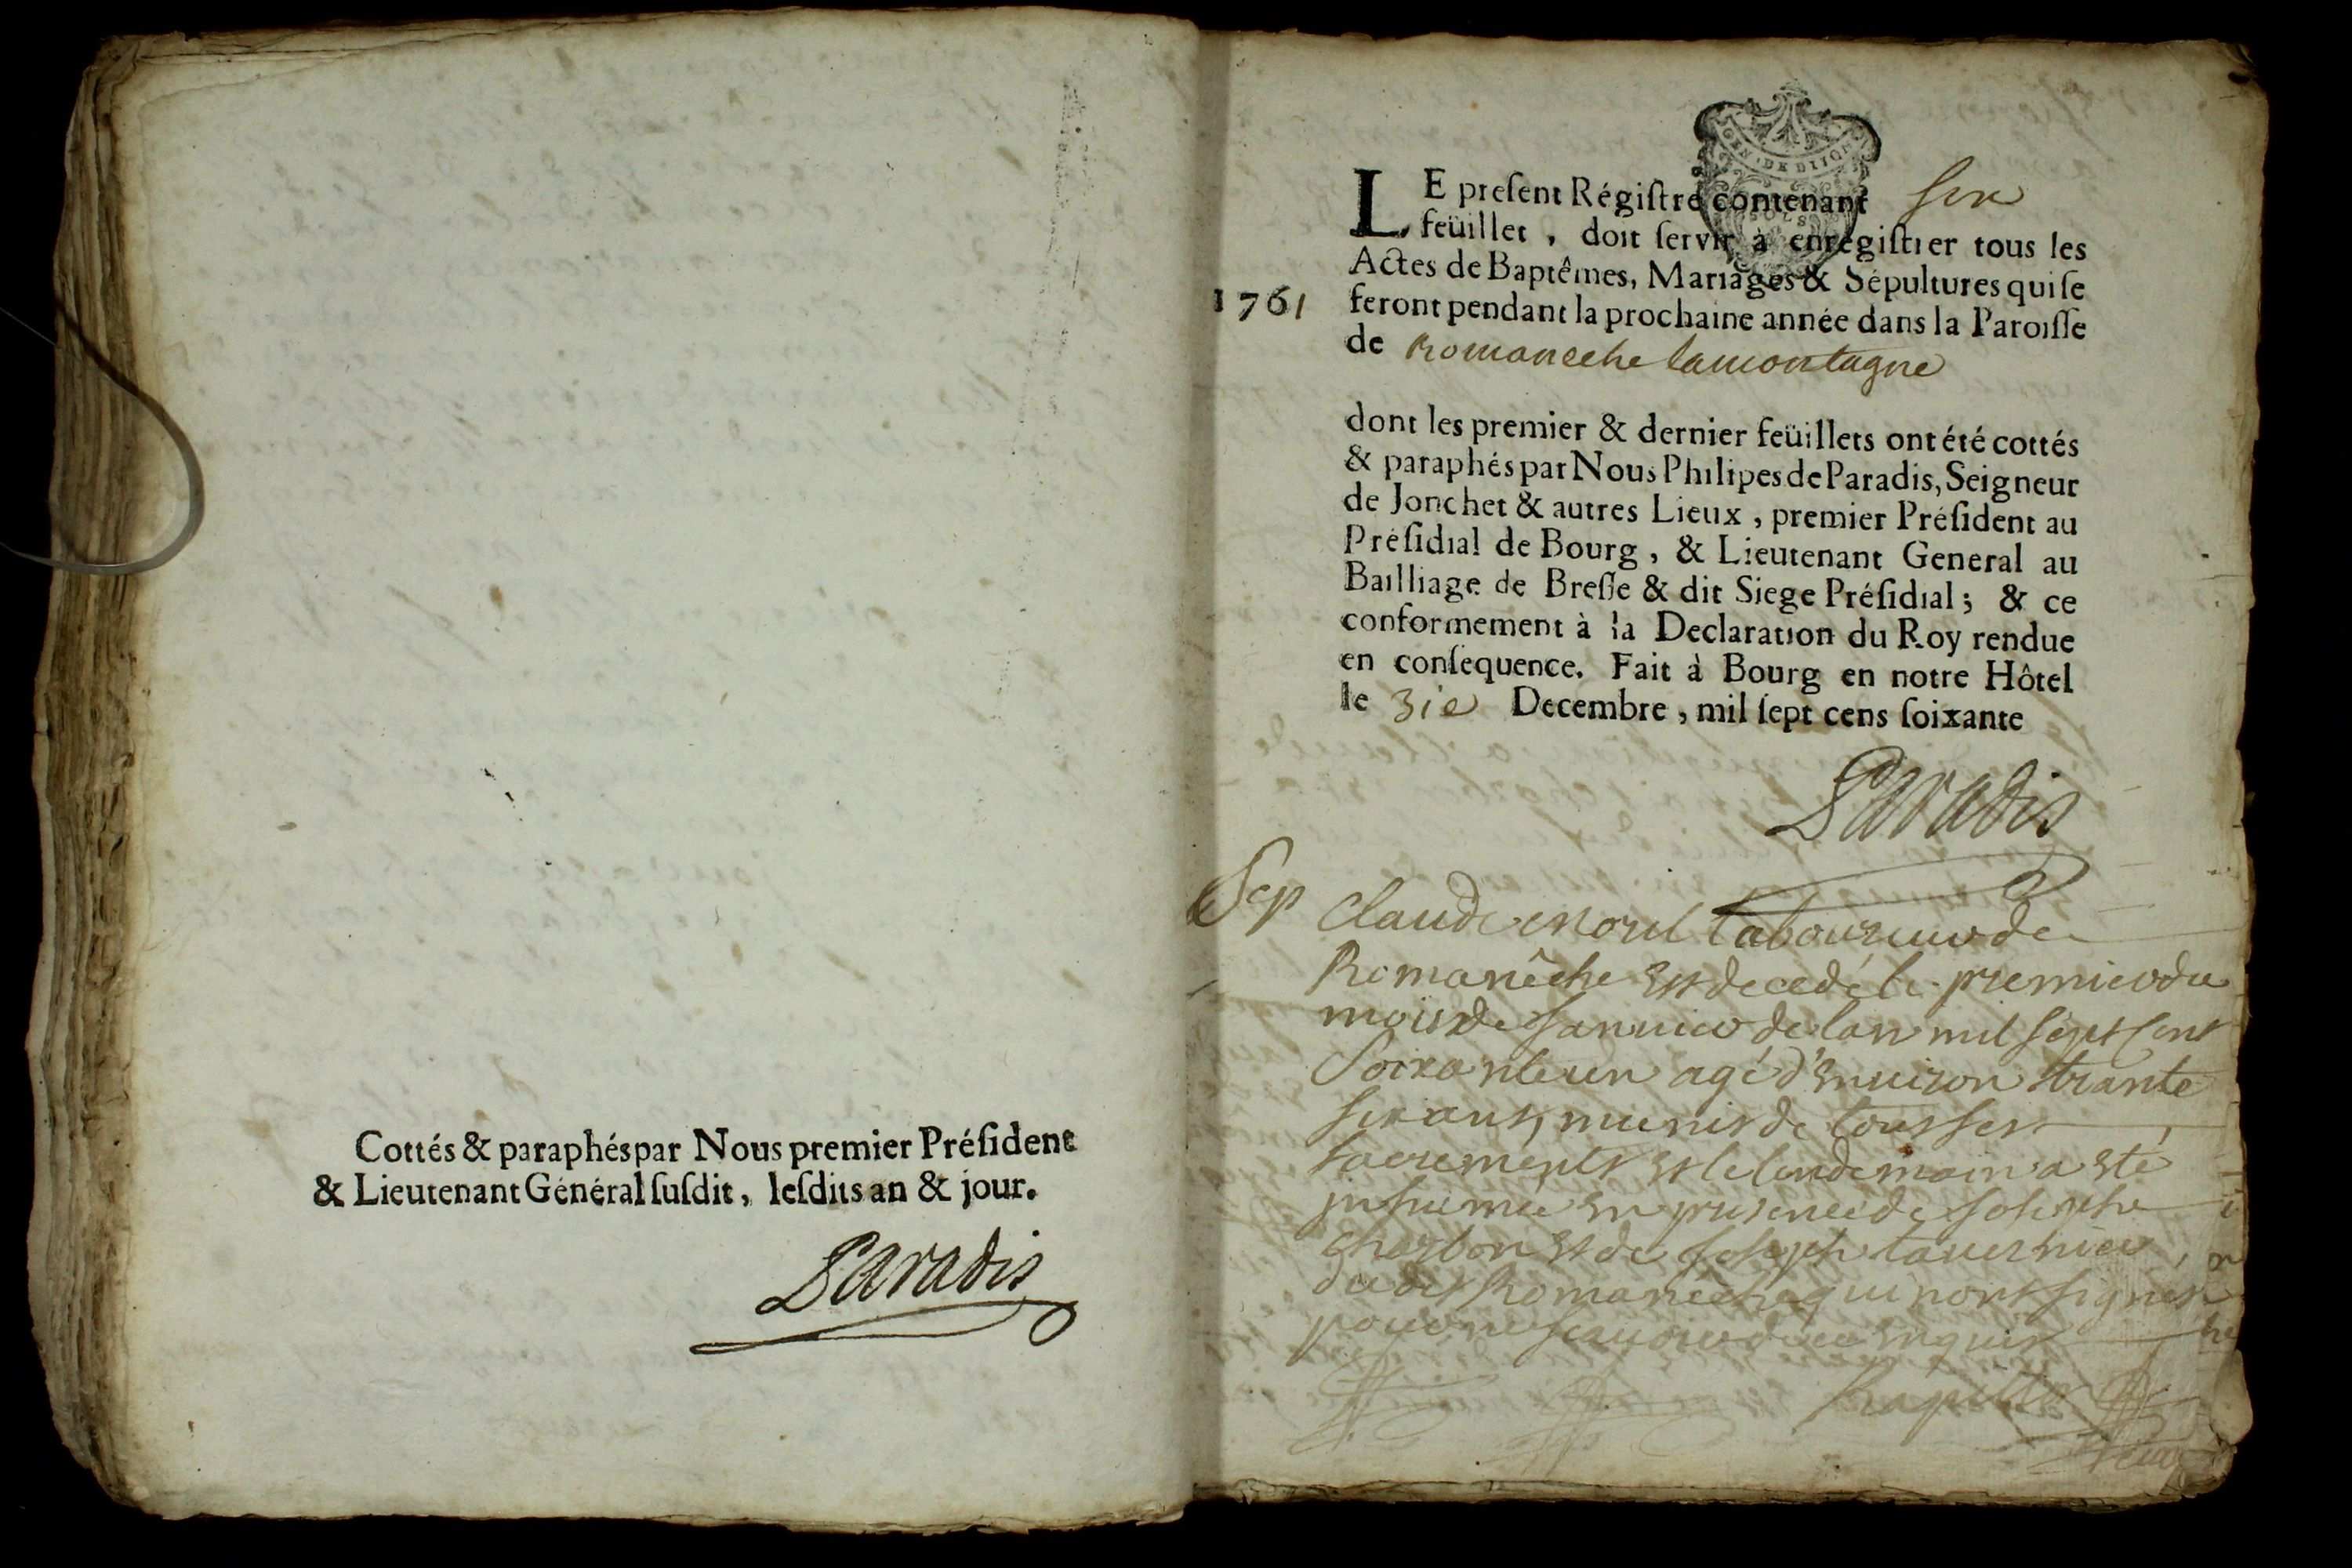 Cottés & paraphés par Nous premier Préſident
& Lieutenant Général ſuſdit, leſdits an & jour.
Paradis
GEN · DE DIION
LE preſent Régiſtre contenant six
feüillet, doit ſervir à enrégiſtrer tous les
Actes de Baptêmes, Mariages & Sépultures qui ſe
1761
feront pendant la prochaine année dans la Paroiſſe
de Romaneche lamontagne
dont les premier & dernier feüillets ont été cottés
& paraphés par Nous Philipes de Paradis, Seigneur
de Jonchet & autres Lieux, premier Préſident au
Préſidial de Bourg, & Lieutenant General au
Bailliage de Breſſe & dit Siege Préſidial; & ce
conformement à la Declaration du Roy rendue
en conſequence. Fait à Bourg en notre Hôtel
le 31e Decembre, mil ſept cens ſoixante
Paradis
Sep Claude morel laboureur de
Romanêche est decedé le premier du
mois de Janvier de lan mil sept cent
Soixante un agé d'environ trante
six ans, munis de tous ses
sacrements et le lendemain a eté
inhumé en presence de Joseph
Charbon et de Joseph tavernier
dudit Romanêche qui n'ont signés
pour ne scavoir de ce enquis